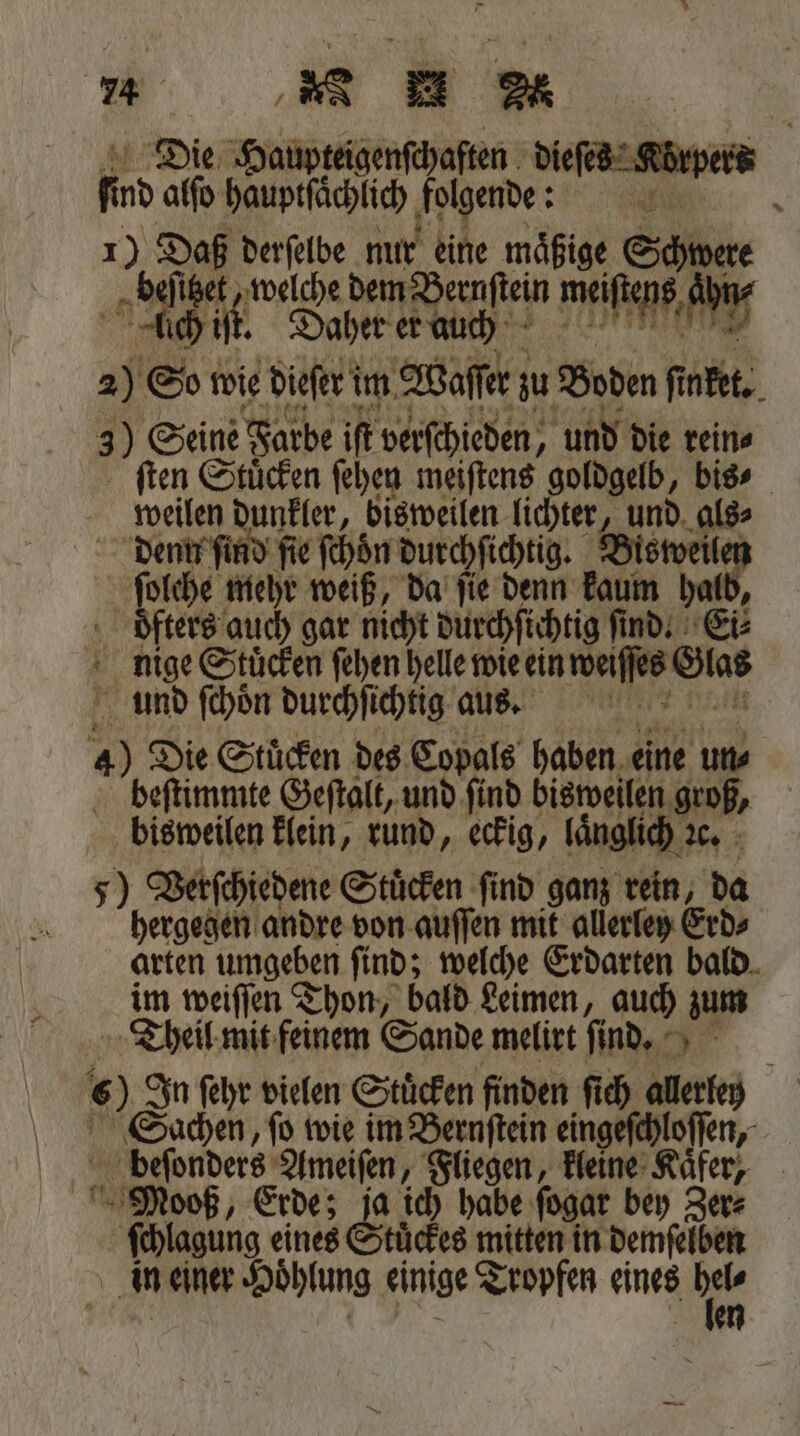 74
Die Haupteigenſchaften dieſes Koͤrpers
ſind alſo hauptſaͤchlich folgende:
1) Daß derſelbe nur eine maͤßige Schwere
beſitzet, welche dem Bernſtein meiſtens aͤhn⸗
lich iſt. Daher er auch
2) So wie dieſer im Waſſer zu Boden ſinket.
3) Seine Farbe iſt verſchieden, und die rein⸗
ſten Stuͤcken ſehen meiſtens goldgelb, bis⸗
weilen dunkler, bisweilen lichter, und als⸗
denn ſind ſie ſchoͤn durchſichtig. Bisweilen
ſolche mehr weiß, da ſie denn kaum halb,
oͤfters auch gar nicht durchſichtig ſind. Ei⸗
nige Stuͤcken ſehen helle wie ein weiſſes Glas
und ſchoͤn durchſichtig aus.
4) Die Stuͤcken des Copals haben eine un⸗
beſtimmte Geſtalt, und ſind bisweilen groß,
bisweilen klein, rund, eckig, laͤnglich ꝛc.
5) Verſchiedene Stuͤcken ſind ganz rein, da
hergegen andre von auſſen mit allerley Erd⸗
arten umgeben ſind; welche Erdarten bald
im weiſſen Thon, bald Leimen, auch zum
Theil mit feinem Sande melirt ſind.
6) In ſehr vielen Stuͤcken finden ſich allerley
Sachen, ſo wie im Bernſtein eingeſchloſſen,
beſonders Ameiſen, Fliegen, kleine Kaͤfer,
Mooß, Erde; ja ich habe ſogar bey Zer⸗
ſchlagung eines Stuͤckes mitten in demſelben
in einer Hoͤhlung einige Tropfen eines hel⸗
len